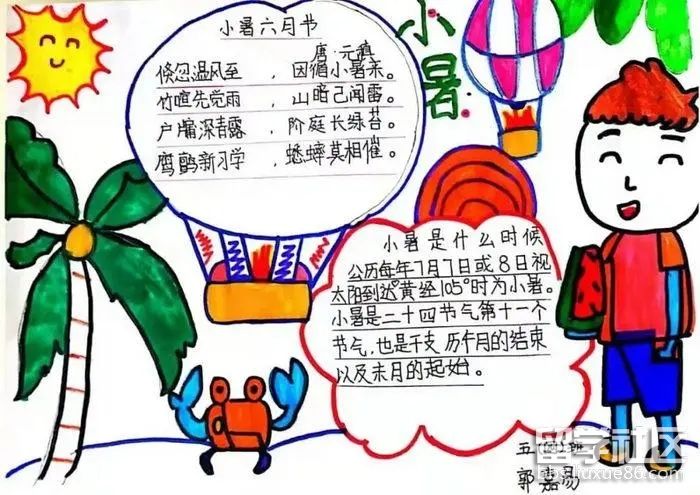 小暑
小暑六月节
唐·元稹
倏忽温风至，因循小暑来。
竹喧先觉雨，山暗已闻雷。
户牖深青霭，阶庭长绿苔。
鹰鹯新习学，蟋蟀莫相催。
小暑是什么时候
公历每年7月7日或8日视
太阳到达黄经105°时为小暑。
小暑是二十四节气第十一个
节气,也是干支历午月的结束
以及未月的起始。
郭嘉易
留学社区